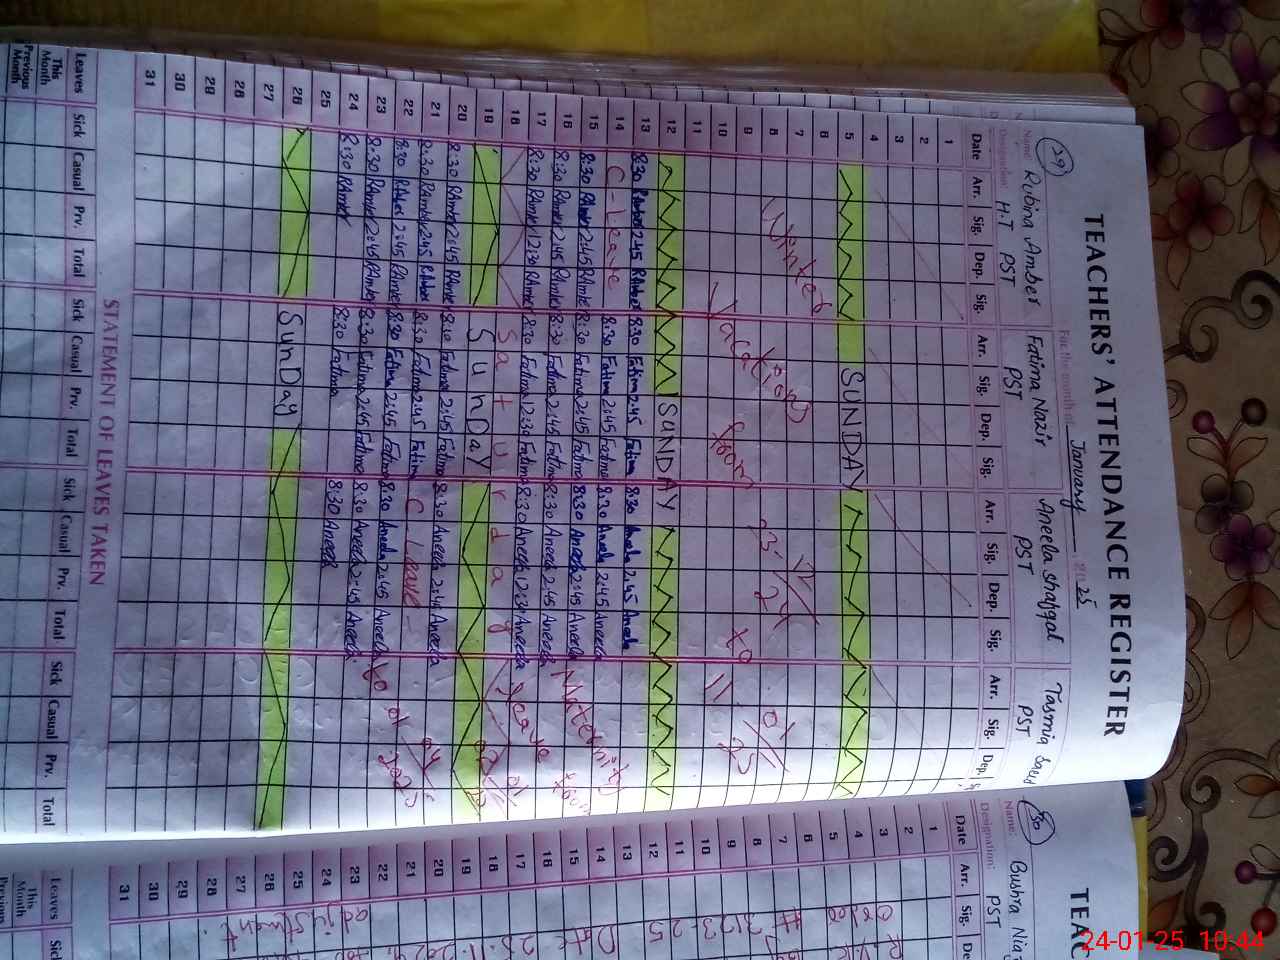 TEACHERS' ATTENDANCE REGISTER
For the month of January 2025
29
Name: Rubina Amber Fatima Nazir Aneela Shafqat Tasmia Saeed
Designation: H.T PST PST PST PST
Date Arr. Sig. Dep. Sig. Arr. Sig. Dep. Sig. Arr. Sig. Dep. Sig. Arr. Sig. Dep.
1
2
3
4
5 SUNDAY
6
7
8
9
10
11
Winter Vacations from 23-12/24 to 11 01/25
12 SUNDAY
13 8:30 RAmber 2:45 RAmber 8:30 Fatima 2:45 Fatima 8:30 Aneela 2:45 Aneela
14 C-Leave 8:30 Fatima 2:45 Fatima 8:30 Aneela 2:45 Aneela
15 8:30 RAmber 2:45 RAmber 8:30 Fatima 2:45 Fatima 8:30 Aneela 2:45 Aneela
16 8:30 RAmber 2:45 RAmber 8:30 Fatima 2:45 Fatima 8:30 Aneela 2:45 Aneela
17 8:30 RAmber 12:30 RAmber 8:30 Fatima 12:30 Fatima 8:30 Aneela 12:30 Aneela
18 Saturday
19 SunDay
20 8:30 RAmber 2:45 RAmber 8:10 Fatima 2:45 Fatima 8:30 Aneela 2:45 Aneela
21 8:30 RAmber 2:45 RAmber 8:30 Fatima 2:45 Fatima C-Leave
22 8:30 RAmber 2:45 RAmber 8:30 Fatima 2:45 Fatima 8:30 Aneela 2:45 Aneela
23 8:30 RAmber 2:45 RAmber 8:30 Fatima 2:45 Fatima 8:30 Aneela 2:45 Aneela
24 8:30 RAmber 8:30 Fatima 8:30 Aneela
25
26 SunDay
27
28
29
30
31
Maternity Leave from
to 01 04 2025
STATEMENT OF LEAVES TAKEN
Leaves Sick Casual Prv. Total Sick Casual Prv. Total Sick Casual Prv. Total Sick Casual Prv. Total
This Month
Previous Month
TEAC
30
Name: Bushra Niaz
Designation: PST
Date Arr. Sig.
1
2
3
4
5
6
7
8
9
10
11
12
13
14
15
16
17
18
19
20
21
22
23
24
25
26
27
28
29
30
31
Order # 3123-25
adjustment
Leaves Sick
This Month
Previous
24-01-25 10:44